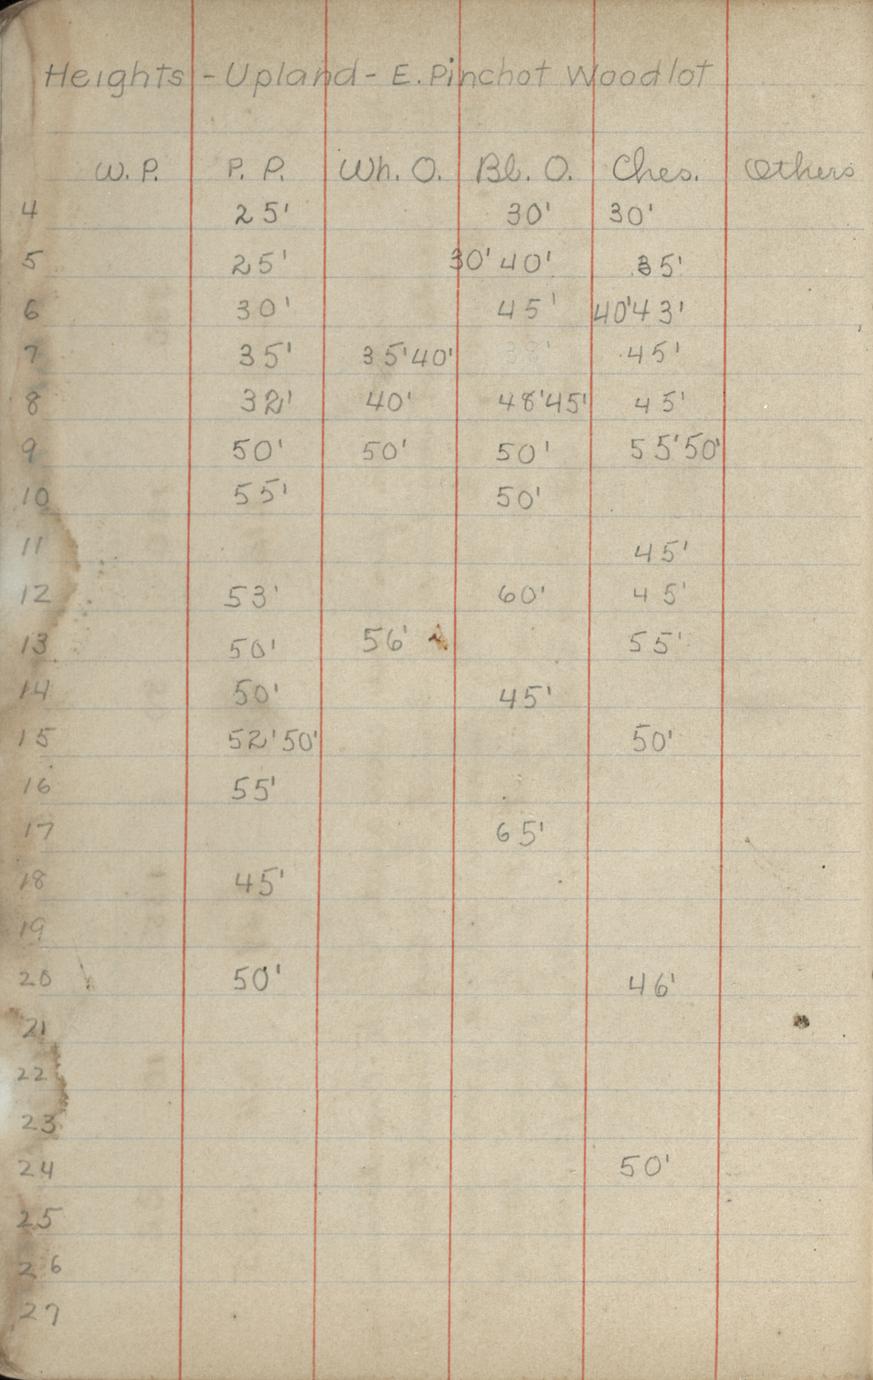 Heights - Upland - E. Pinchot Woodlot
W. P. P. P. Wh. O. Bl. O. Ches. Others
4 25' 30' 30'
5 25' 30' 40' 35'
6 30' 45' 40' 43'
7 35' 35' 40' 45'
8 32' 40' 48' 45' 45'
9 50' 50' 50' 55' 50'
10 55' 50'
11 45'
12 53' 60' 45'
13 50' 56' 55'
14 50' 45'
15 52' 50' 50'
16 55'
17 65'
18 45'
19
20 50' 46'
21
22
23
24 50'
25
26
27